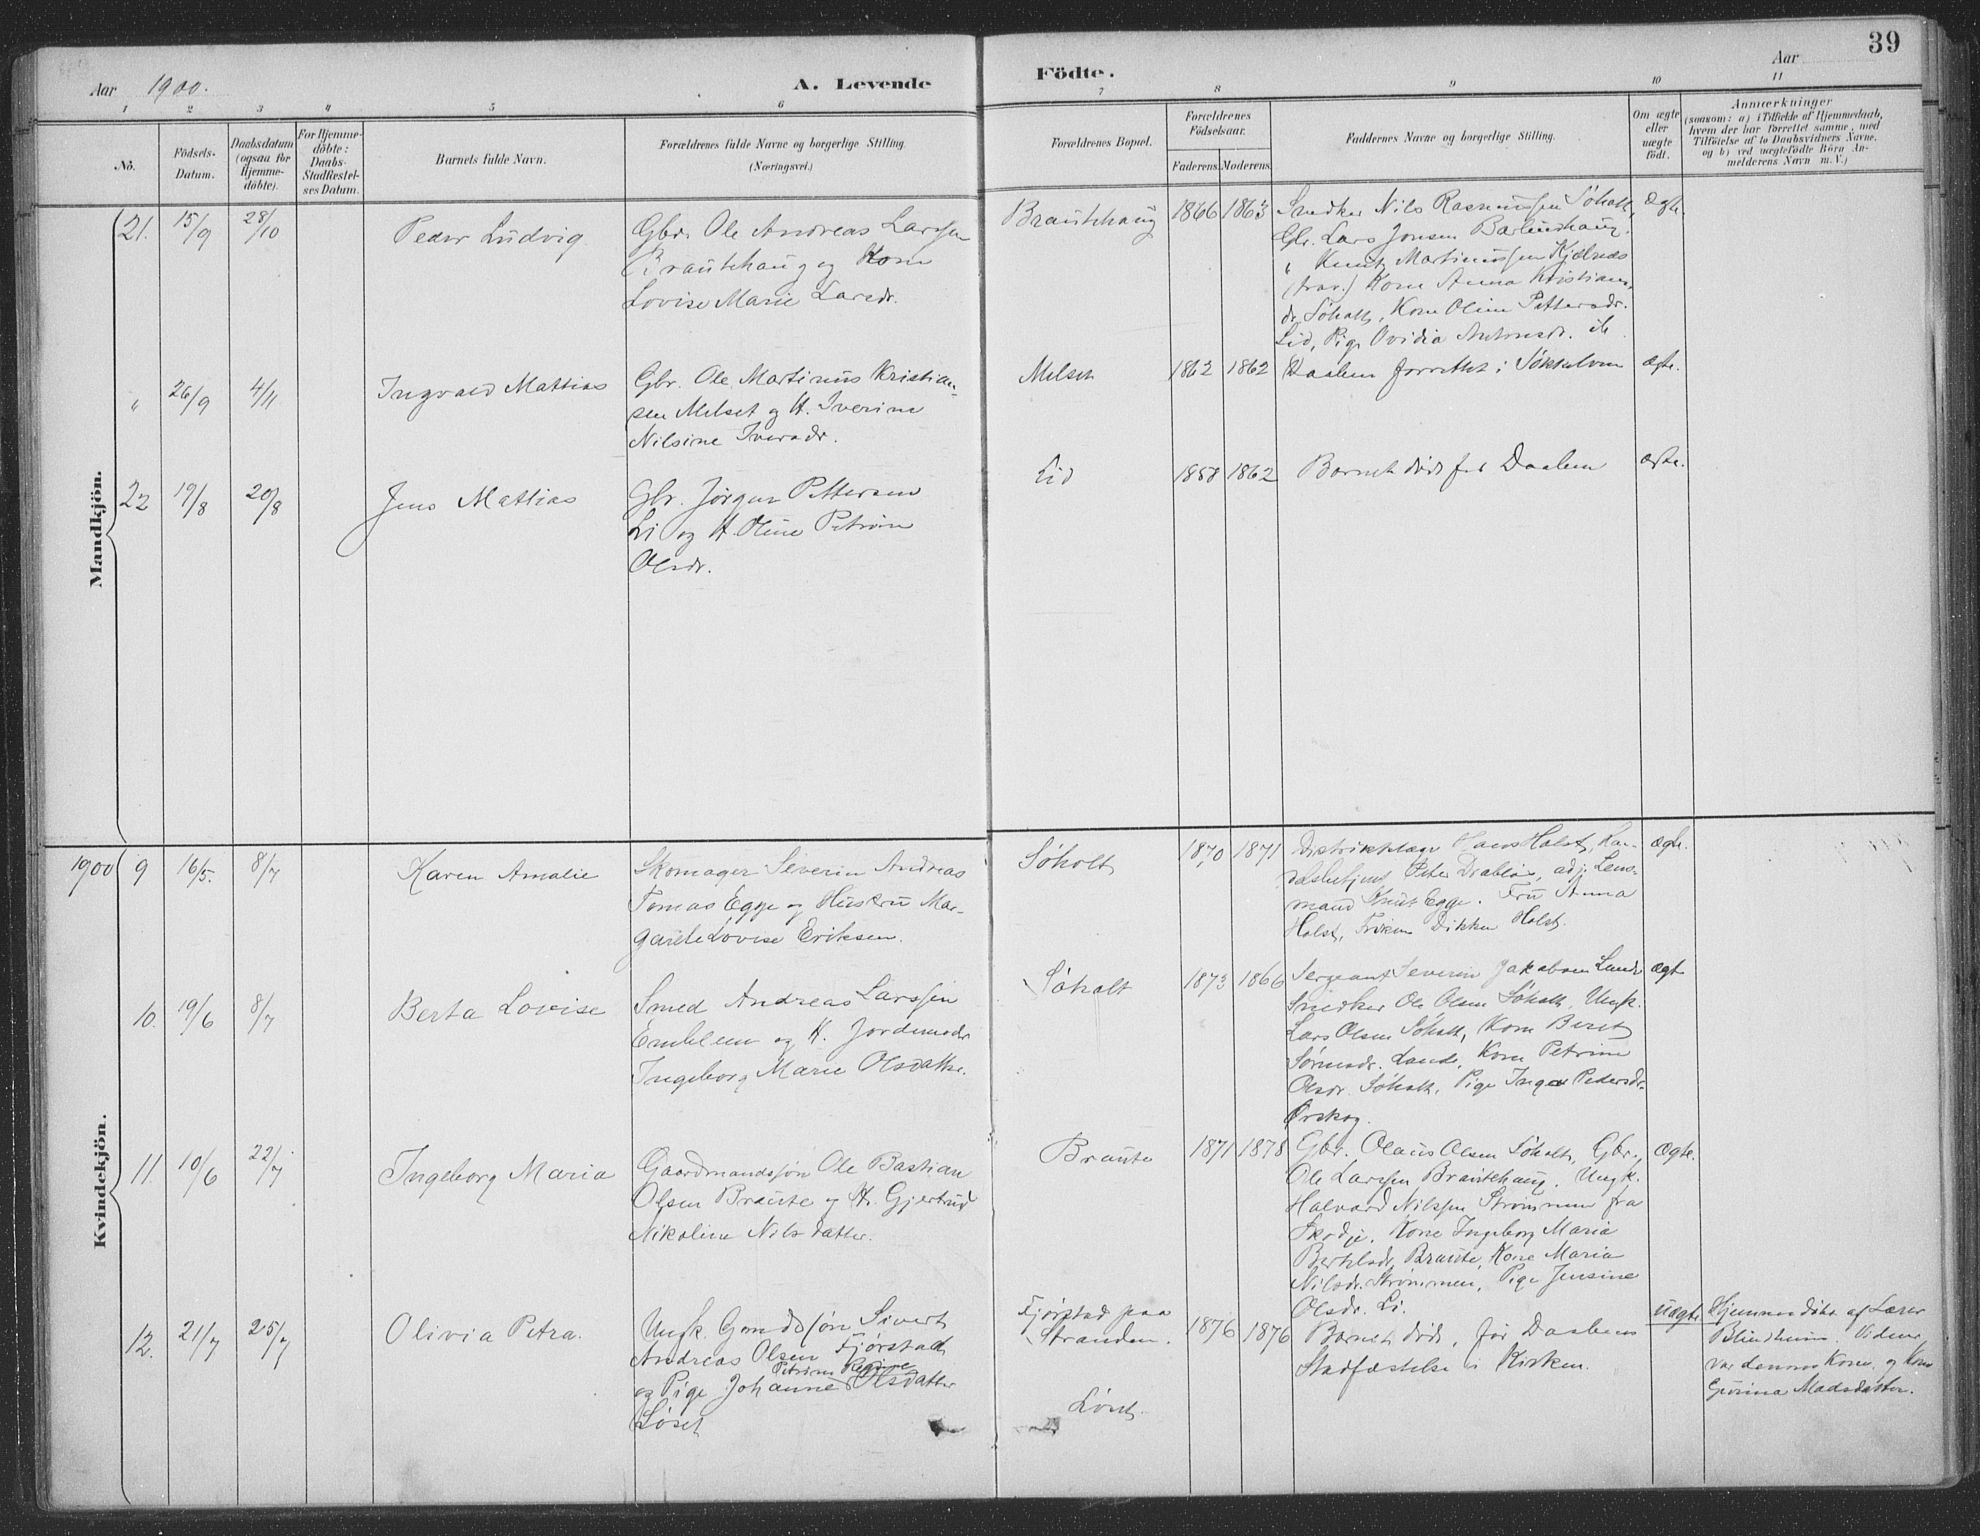 39
Aar 1900.
A. Levende
Födte.
Aar
1 2 3 4 5 6 7 8 9 10 11
No.
Födsels-
Datum.
Daabsdatum
(ogsaa for
Hjemme-
döbte).
For Hjemme-
döbte:
Daabs-
Stadfæstel-
ses Datum.
Barnets fulde Navn.
Forældrenes fulde Navne og borgerlige Stilling.
(Næringsvei.)
Forældrenes Bopæl.
Forældrenes
Födselsaar.
Faderens. Moderens.
Faddernes Navne og borgerlige Stilling.
Om ægte
eller
uægte
födt.
Anmærkninger
(saasom: a) i Tilfælde af Hjemmedaab,
hvem der har forrettet samme, med
Tilföielse af to Daabsvidners Navne.
og b) ved uægtefödte Börn An-
melderens Navn m. V.)
Mandkjön.
21. 15/9 28/10 Peder Ludvig
Gbr. Ole Andreas Larssen
Brautehaug og Kone
Lovise Marie Larsdr.
Brautehaug 1866 1863
Snedker Nils Rasmussen Søholt,
Gbr. Lars Jonsen
" Knut Martinussen
Kone Anna Kristians-
dr. Søholt, Kone Oline Pettersdr.
Lid, Pige Ovidia
Ægte.
" 26/9 4/11 Ingvald Mattias
Gbr. Ole Martinus Kristian-
sen Melset og H. Iverine
Nilsine Iversdr.
Melset 1862 1862
Daaben forrettet i
Ægte.
22 19/8 20/8 Jens Mattias
Gbr. Jørgen Pettersen
Li og H. Oline Petrine
Olsdr.
Lid 1858 1862
Barnet døde før Daaben
ægte.
Kvindekjön.
1900 9 16/5. 8/7 Karen Amalie
Skomager Severin Andreas
Tomas Egge og Hustru Mar-
garete Lovise Eriksen.
Søholt 1870 1871
Distriktslæge Hans Holst, Han-
delsbetjent Peter Drabløs, adj. Lens-
mand Knut Egge. Fru Anna
Holst, Frøken Dikken Holst.
ægte.
10. 19/6 8/7 Berta Lovise
Smed Andreas Larssen
Emblem og H. Jordemoder
Ingeborg Marie Olsdatter.
Søholt 1873 1866
Sergeant Severin Jakobsen Lande
Snedker Ole Olsen Søholt, Ungk.
Lars Olsen Søholt, Kone Beret
Lande, Kone Petrine
Olsdr. Søholt, Pige Inga Pedersdr.
Ørskog.
Ægte
11. 10/6 22/7 Ingeborg Maria
Gaardmandssøn Ole Bastian
Olsen Braute og H. Gjertrud
Nikoline Nilsdatter.
Braute 1871 1878
Gbr. Olaus Olsen Søholt, Gbr.
Ole Larssen Brautehaug. Ungk.
Halvard Nilssen Strømmen fra
Skodje. Kone Ingeborg Maria
Bertelsdr. Braute, Kone Maria
Nilsdr. Strømmen, Pige Jensine
Olsdr. Li.
Ægte.
12. 21/7 25/7 Olivia Petra.
Ungk. Gmdssøn Sivert
Andreas Olsen Fjørstad
Petrine Regine
og Pige Johanne Olsdatter
Løset
Fjørstad paa
Stranden.
Løset.
1876 1876
Barnet døde før Daabens
Stadfæstelse i Kirken.
Uægte
Hjemmedøbt af Lærer
Blindheim. Vidner
var dennes Kone og Kone
Gurina Madsdatter.